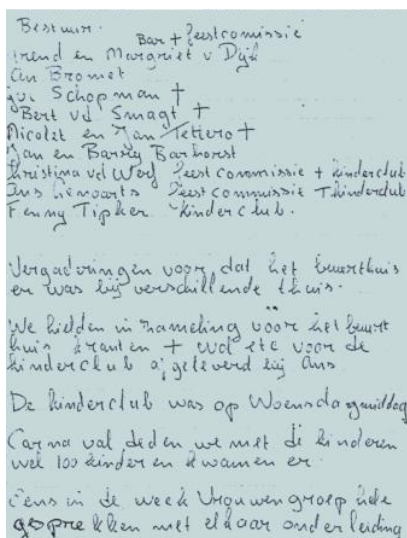 Bestuur.
Bar + feestcomissie
en Margriet v Dijk
Bromet
Schopman †
Bert vd Smagt †
Nicolet en Jan Tettero †
Jan en Barbarhorst
Christina vd Werf feest commissie + kinderclub
Ans feest commissie + kinderclub
Fenny Tipker kinderclub.
Vergaderingen voor dat het buurthuis
er was bij verschillende thuis.
We hielden in zameling vöör het buurt
huis kranten + wol etc voor de
kinderclub afgeleverd bij Ans
De kinderclub was op Woensdagmiddag
Carna val deden we met de kinderen
wel 100 kinderen kwamen er.
Eens in de week Vrouwengroep hele
gesprekken met elkaar onder leiding